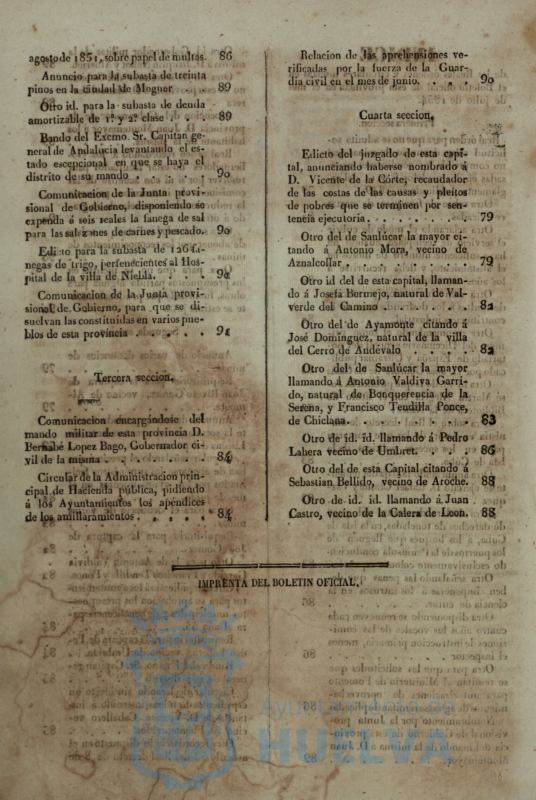 agosto de 1851, sobre papel de multas. 86
Anuncio para la subasta de treinta
pinos en la ciudad de Moguer . . 89
Otro id. para la subasta de deuda
amortizable de 1ª y 2ª clase . . . 89
Bando del Excmo. Sr. Capitan general de Andalucia levantando el es-
tado escepcional en que se haya el
distrito de su mando . . . . 90
Comunicacion de la Junta provi-
sional de Gobierno, disponiendo se
expenda á seis reales la fanega de sal
para las salazones de carnes y pescado. 90
Edicto para la subasta de 126 fa-
negas de trigo, pertenecientes al Hos-
pital de la villa de Niebla. . . .
Comunicacion de la Junta provi-
sional de Gobierno, para que se di-
suelvan las constituidas en varios pue-
blos de esta provincia . . . . . 91
Tercera seccion.
Comunicacion encargándose del
mando militar de esta provincia D.
Bernabé Lopez Bago, Gobernador ci-
vil de la misma . . . . . . 84
Circular de la Administracion prin-
cipal de Hacienda pública, pidiendo
á los Ayuntamientos los apéndices
de los amillaramientos . . . . . 84
Relacion de las aprehensiones ve-
rificadas por la fuerza de la Guar-
dia civil en el mes de junio. . . . 90
Cuarta seccion.
Edicto del juzgado de esta capi-
tal, anunciando haberse nombrado á
D. Vicente de la Córte, recaudador
de las costas de las causas y pleitos
de pobres que se terminen por sen-
tencia ejecutoria . . . . . . . 79
Otro del de Sanlúcar la mayor ci-
tando á Antonio Mora, vecino de
Aznalcollar . . . . . . . . 79
Otro id del de esta capital, llaman-
do á Josefa Bermejo, natural de Val-
verde del Camino . . . . . . 82
Otro del de Ayamonte citando á
José Dominguez, natural de la villa
del Cerro de Andévalo . . . . 82
Otro del de Sanlúcar la mayor
llamando á Antonio Valdiva Garri-
do, natural de Bonquerencia de la
Serena, y Francisco Teudilla Ponce,
de Chiclana . . . . . . . . 83
Otro de id. id. llamando á Pedro
Lahera vecino de Umbret. . . . 86
Otro del de esta Capital citando á
Sebastian Bellido, vecino de Aroche. 88
Otro de id. id llamando á Juan
Castro, vecino de la Calera de Leon. 88
IMPRENTA DEL BOLETIN OFICIAL.
Ayuntamiento de
HUELVA